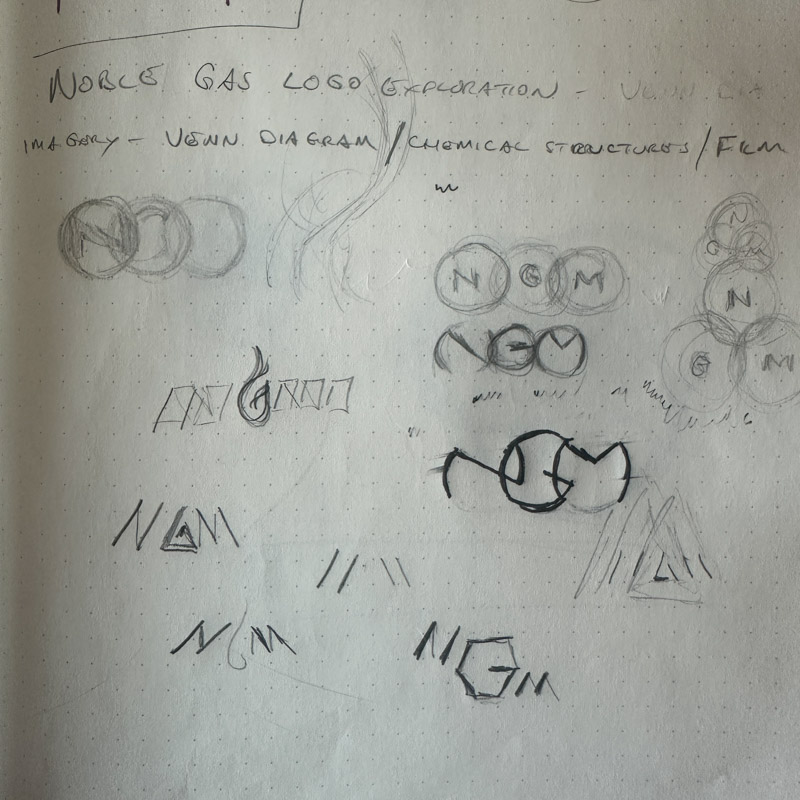 NOBLE GAS LOGO EXPLORATION - VENN DIA
IMAGERY - VENN DIAGRAM / CHEMICAL STRUCTURES / FILM
N
N G M
N
G M
N
G M
NGM
NGM
NGM
NGM
NGM